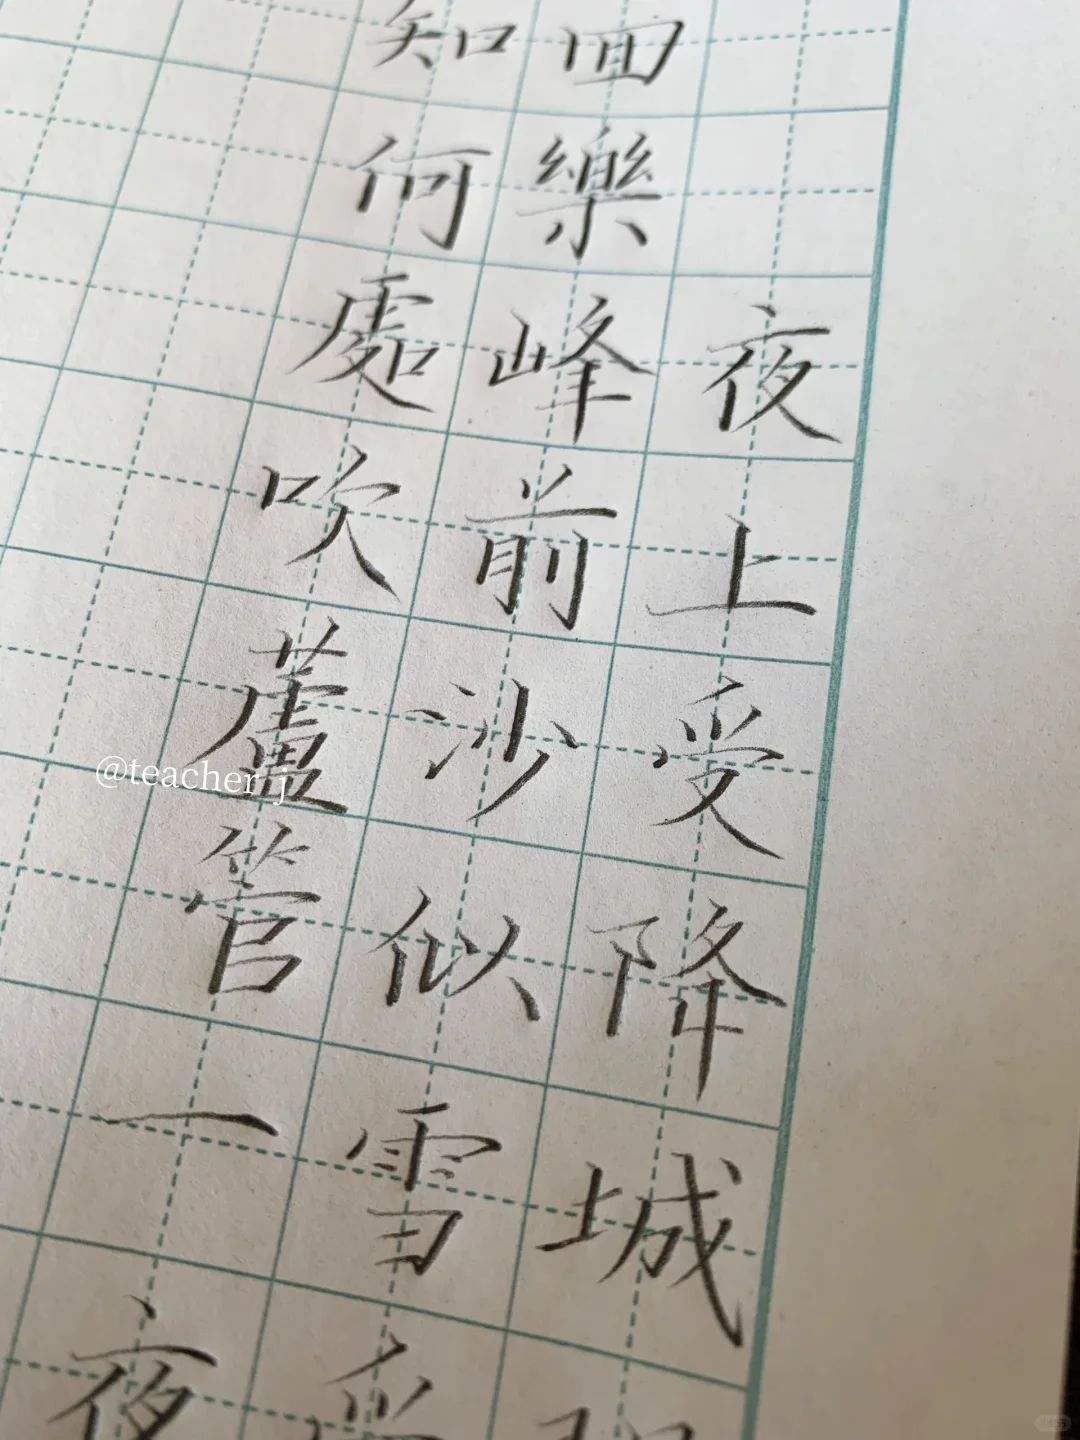 夜上受降城
回樂峰前沙似雪
知何處吹蘆管一夜
@teacher j